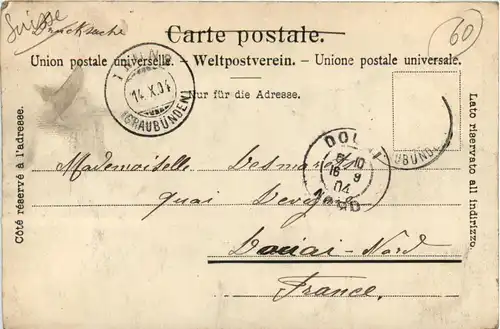 Suisse
Drucksache
Carte postale.
60
Union postale universelle. – Weltpostverein. – Unione postale universale.
14.X.04
(GRAUBÜNDEN)
Nur für die Adresse.
Côté réservé à l'adresse.
Lato riservato all indirizzo.
DOUAI
16 9
04
NORD
UBÜNDEN
Mademoiselle
quai
Douai-Nord
France.